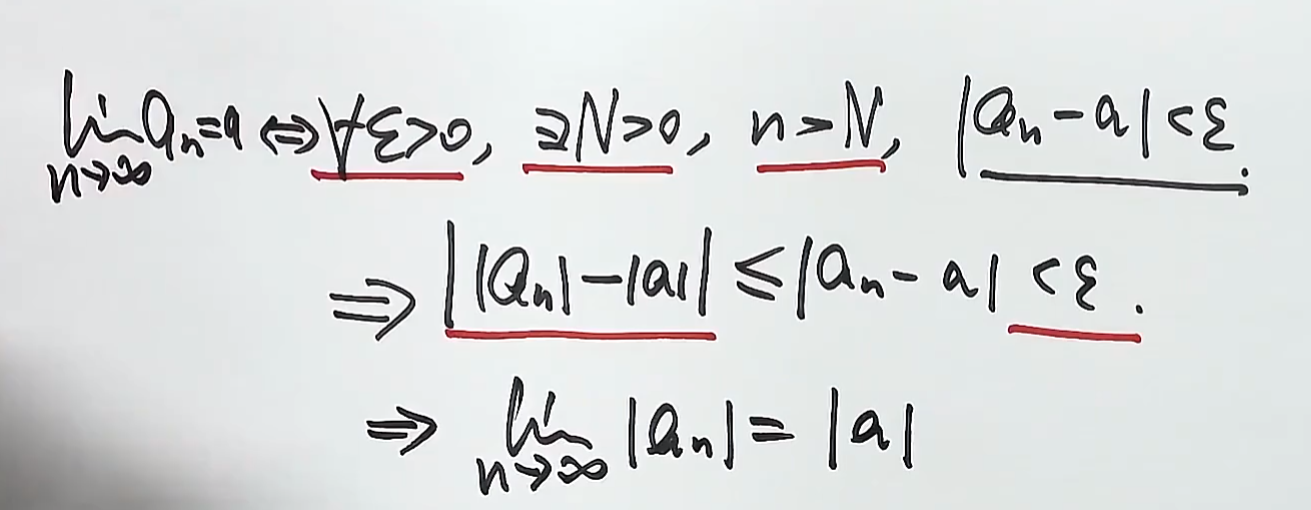 lim n→∞ aₙ=a ⇔ ∀ε>0, ∃N>0, n>N, |aₙ-a|<ε.
⇒ ||aₙ|-|a|| ≤ |aₙ-a| <ε.
⇒ lim n→∞ |aₙ| = |a|